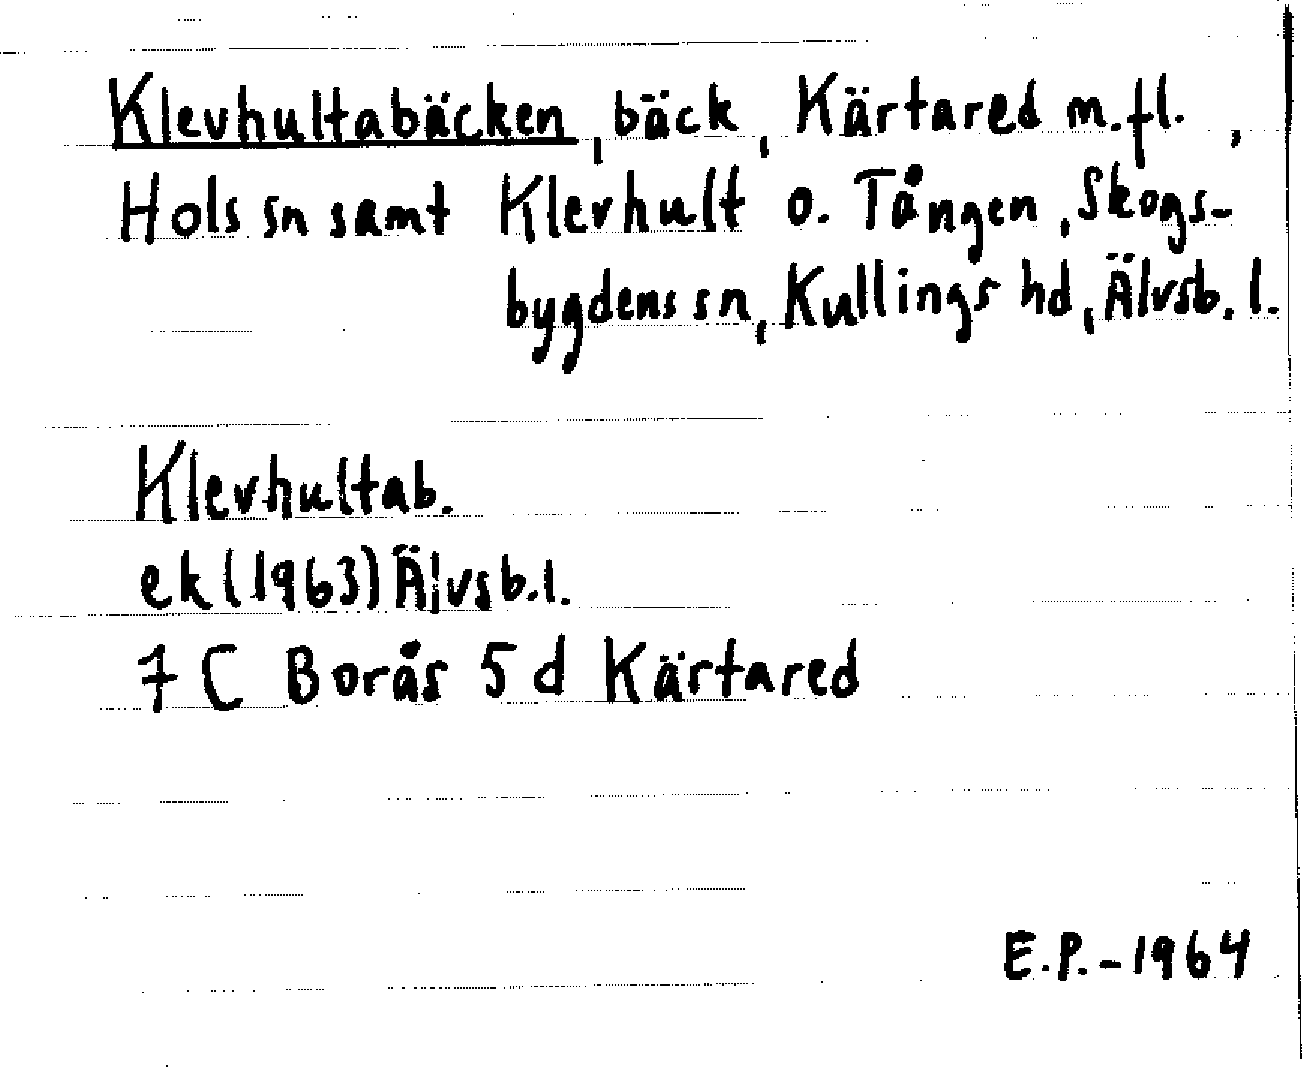 Klevhultabäcken, bäck, Kärtared m.fl.,
Hols sn samt Klevhult o. Tången, Skogs-
bygdens sn, Kullings hd, Älvsb. l.
Klevhultab.
ek (1963) Älvsb.l.
7 C Borås 5 d Kärtared
E.P.-1964